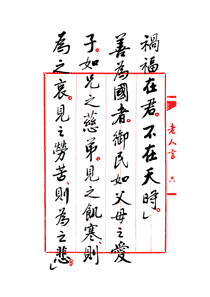 禍福在君。不在天時」
善為國者。御民如父母之愛
子。如兄之慈弟。見之飢寒則
為之哀。見之勞苦則為之悲」
老人言 六